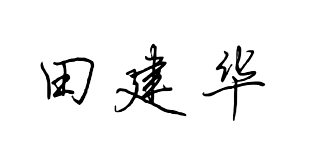 田建华